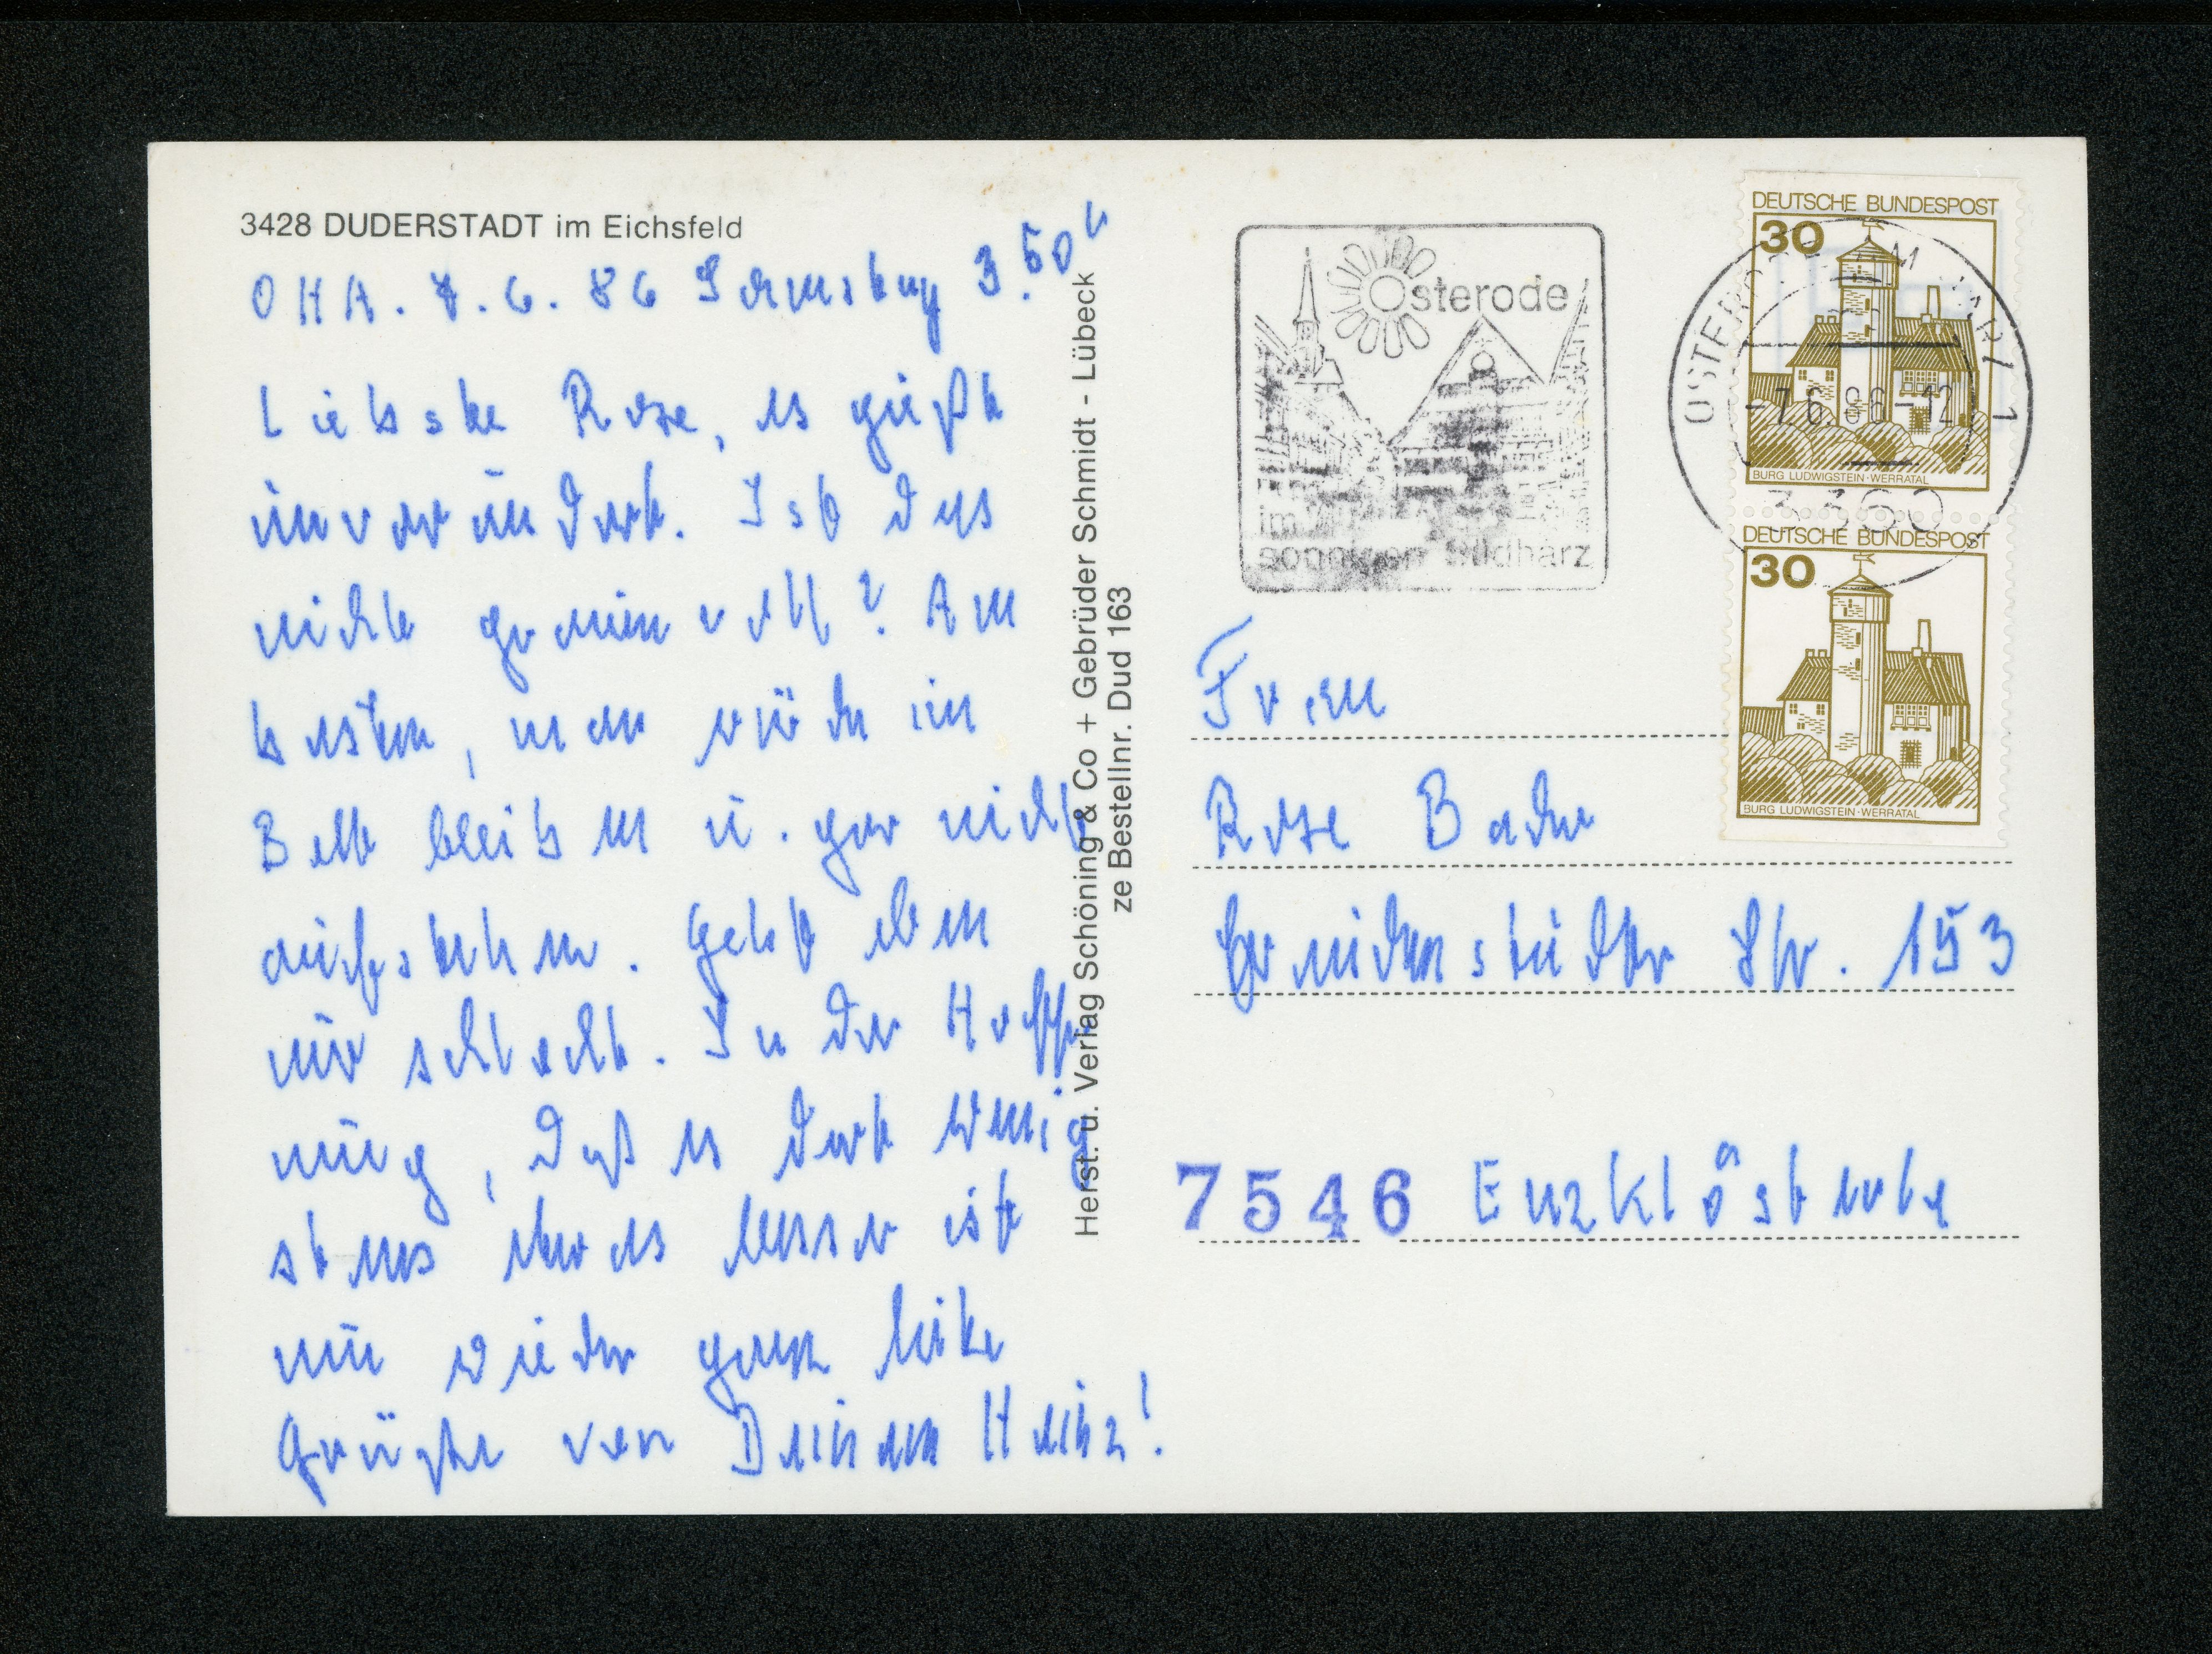 3428 DUDERSTADT im Eichsfeld
OHA. 7.6.86 Samstag 3.50 h
Liebste Rose, es gießt
unverändert. Ist das
nicht gemein voll? Am
besten, man würde im
Bett bleiben u. gar nicht
aufstehen. Geht eben
nur schlecht. In der Hoff-
nung, daß es dort wenig
stens etwas besser ist
nun wieder ganz liebe
Grüße von Deinem Heinz!
Herst. u. Verlag Schöning & Co + Gebrüder Schmidt - Lübeck
ze Bestellnr. Dud 163
Osterode
im
sonnigen Südharz
DEUTSCHE BUNDESPOST
30
BURG LUDWIGSTEIN·WERRATAL
DEUTSCHE BUNDESPOST
30
BURG LUDWIGSTEIN·WERRATAL
OSTERODE AM HARZ 1
-7.6.86-12
3360
Frau
Rose Bader
Freudenstädter Str. 153
7546 Enzklösterle